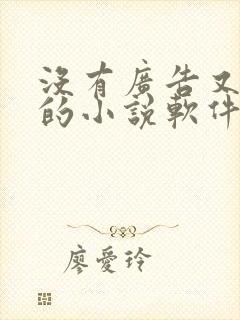 沒有廣告又
的小說軟件
廖愛玲